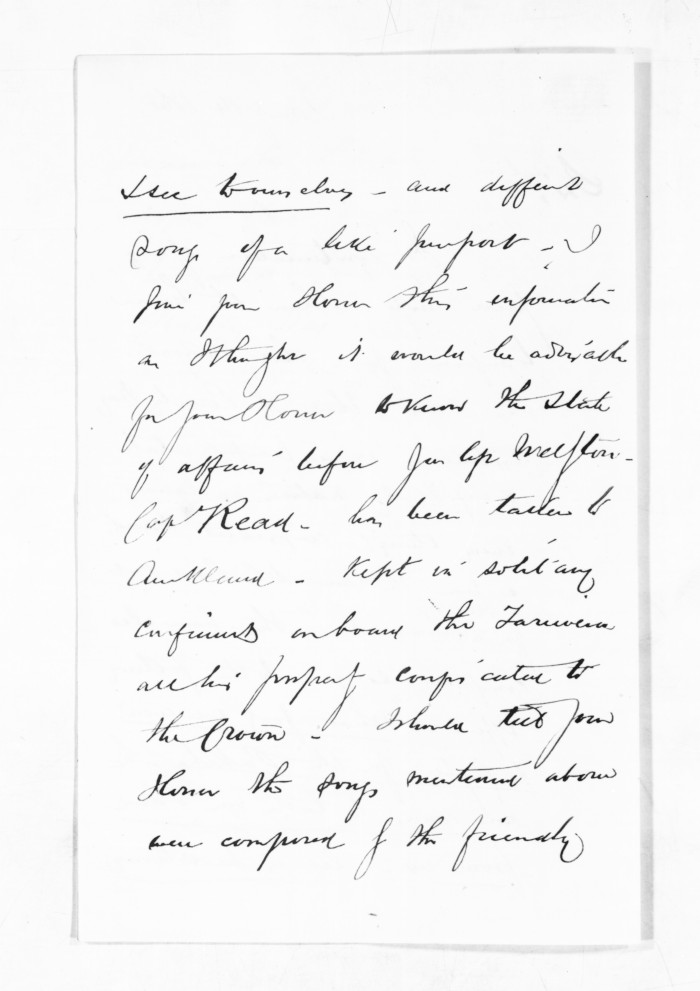 & see to ourselves - and different
songs of a like purport - I
give your Honor this information
as I thought it would be advisable
for your Honor to know the state
of affairs before you left Wellgton -
Capt Read - has been taken to
Auckland - kept in solitary
confinement on board the
all his property confiscated to
the Crown - I should tell your
Honor the songs mentioned above
were composed by the friendly